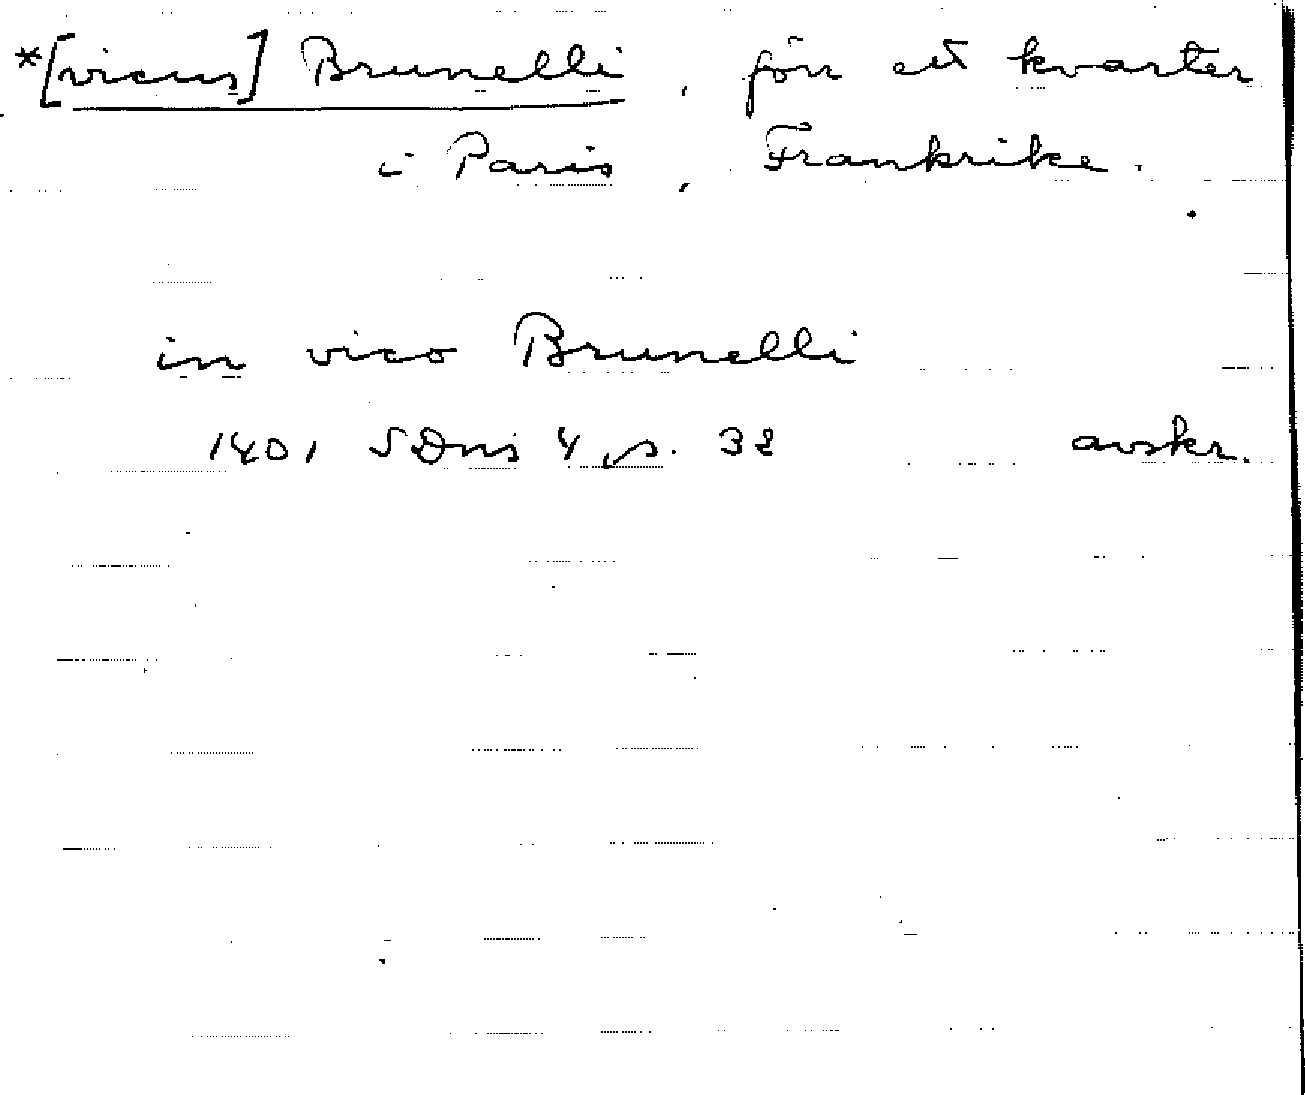 *[vicus] Brunelli, för ett kvarter
i Paris, Frankrike.
in vico Brunelli
1401 SDns 4, s. 32 avskr.